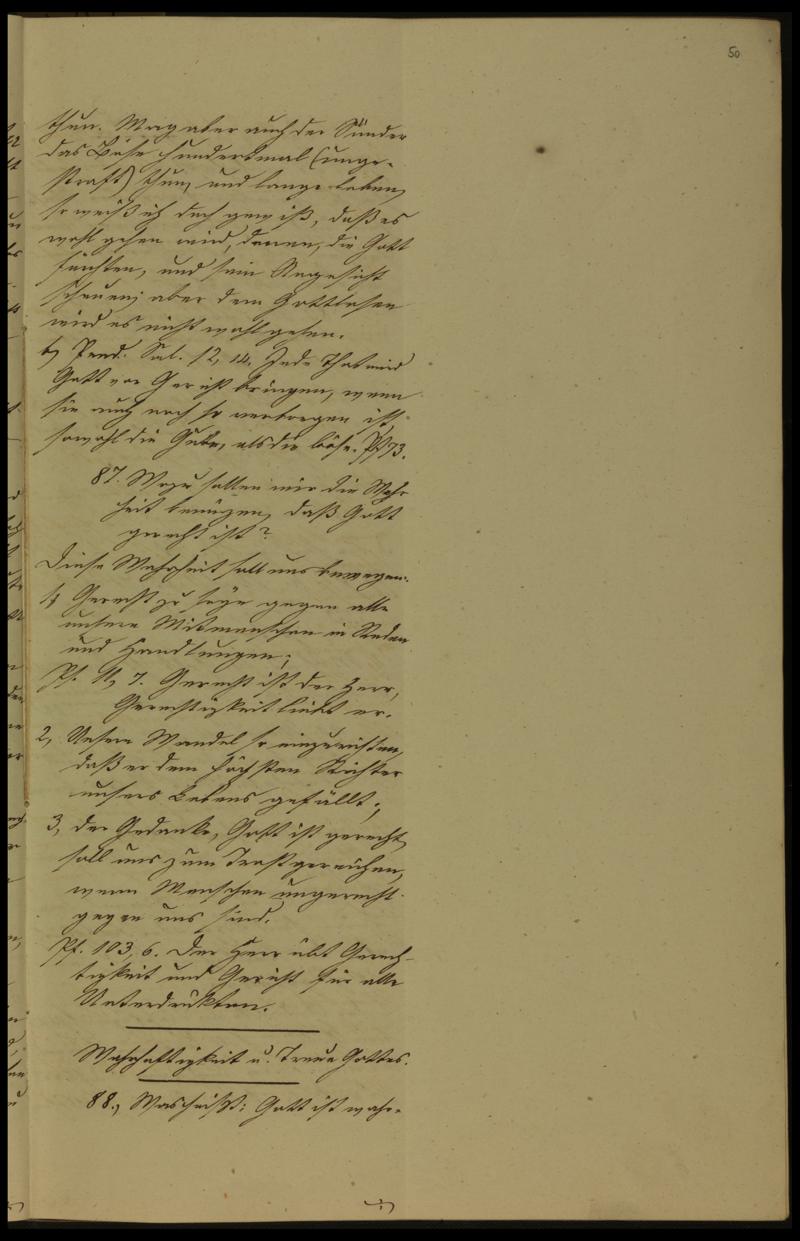 50
thun. Mag aber auch der Sünder
das Böse hundertmal (unge-
straft) thun, und lange leben,
so weiß ich doch gewiß, daß es
wohl gehen wird, denen, die Gott
fürchten, und sein Angesicht
scheuen; aber dem Gottlosen
wird es nicht wohl gehen.
b, Pred. Sal. 12, 14. Jede That wird
Gott vor Gericht bringen, wenn
sie auch noch so verborgen ist,
sowohl die Gute, als die böse. Ps 73.
87. Wozu sollen wir die Wahr
heit benüzen, daß Gott
gerecht ist?
Diese Wahrheit soll uns bewegen:
1, Gerecht zu seÿn gegen alle
unsere Mitmenschen in Reden
und Handlungen;
Ps. 11, 7. Gerecht ist der Herr,
Gerechtigkeit liebt er.
2, Unsern Wandel so einzurichten,
daß er dem höchsten Richter
unsers Lebens gefällt;
3, der Gedanke, Gott ist gerecht,
soll uns zum Trost gereichen,
wenn Menschen ungerecht
gegen uns sind.
Ps. 103, 6. Der Herr übt Gerech-
tigkeit und Gericht für alle
Unterdrükten.
Wahrhaftigkeit u. Treue Gottes.
88., Was heißt: Gott ist wahr-